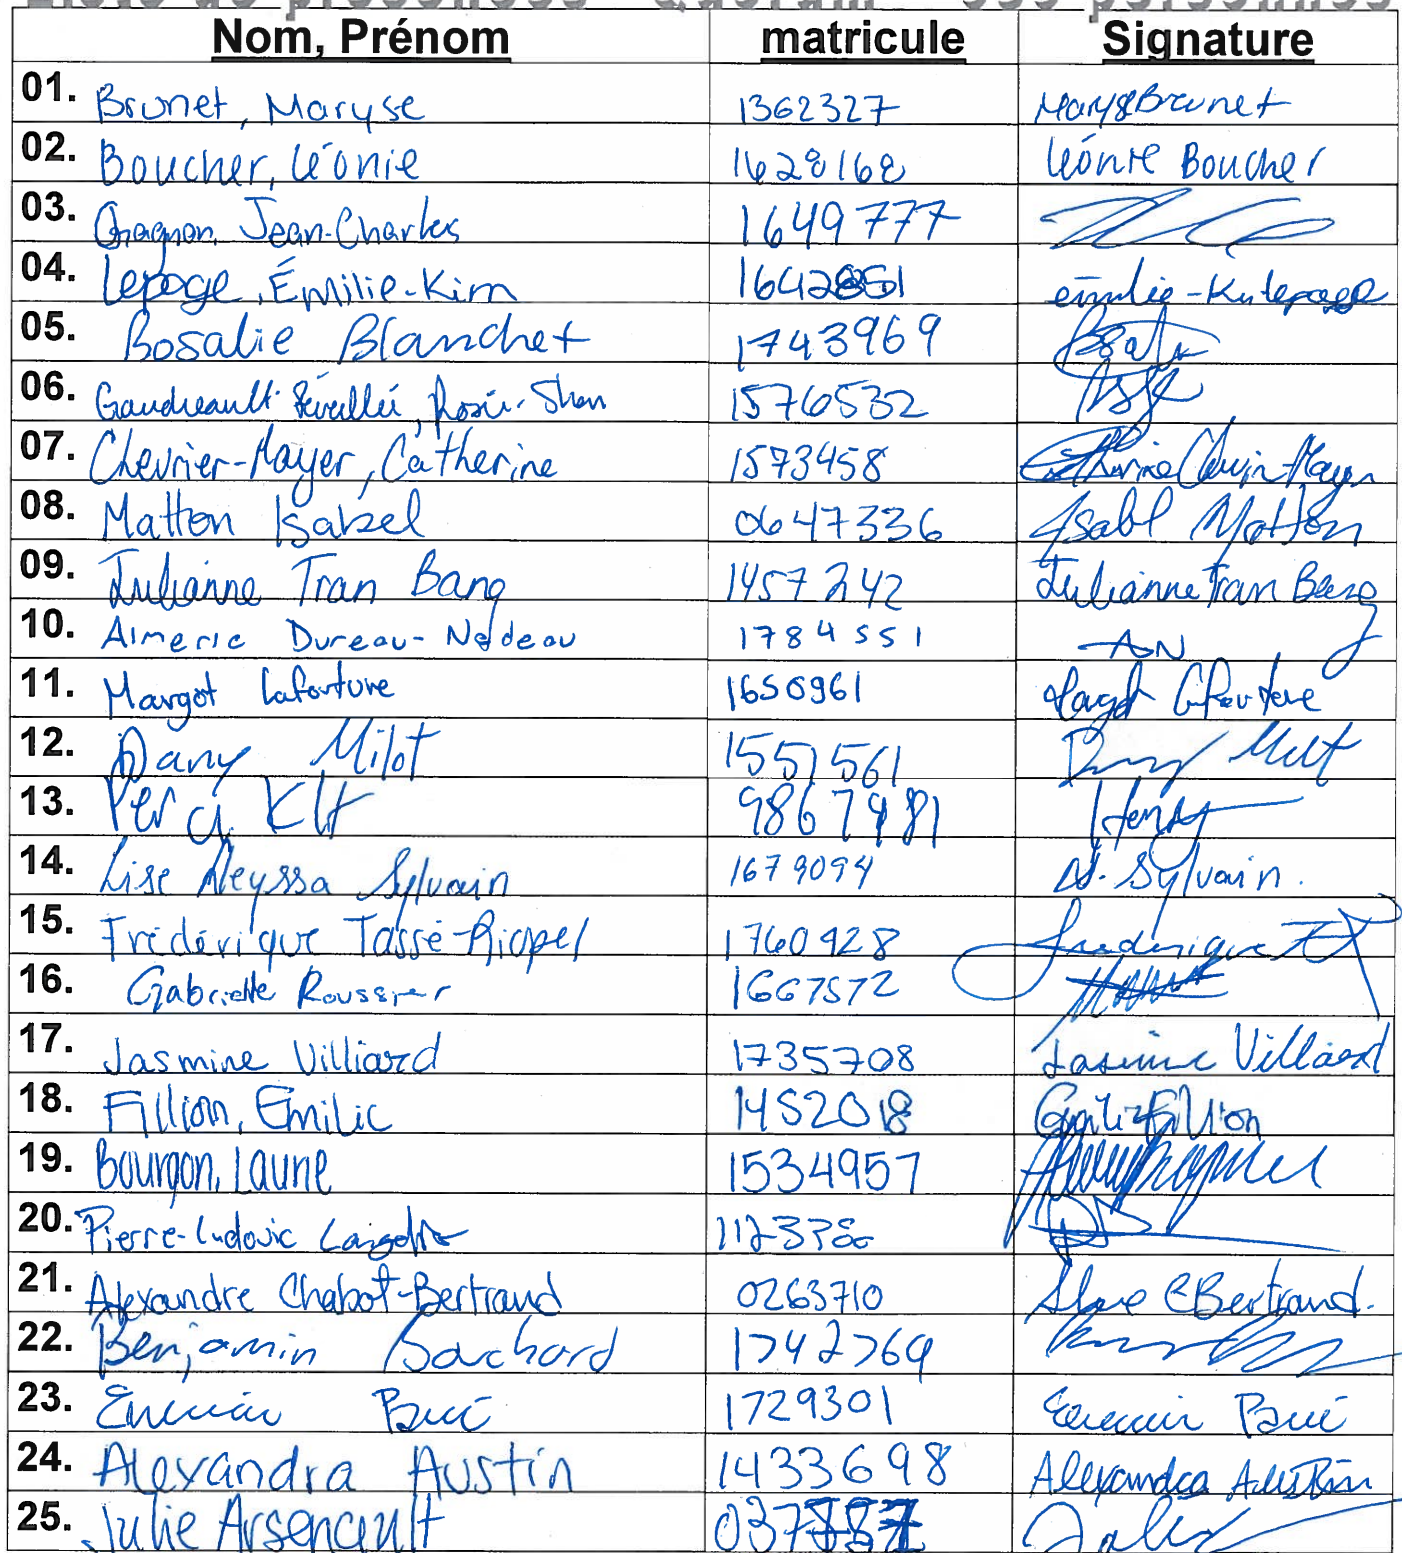 Nom, Prénom matricule Signature
01. Brunet, Maryse 1362327 Maryse Brunet
02. Boucher, Léonie 1628168 Léonie Boucher
03. Gagnon, Jean-Charles 1649777
04. Lepage, Émilie-Kim
05. Rosalie Blanchet 1743969
06. Gaudreault-Réveillé, Rosie-Shan 1576532
07. Chevrier-Mayer, Catherine 1573458 Catherine Chevrier-Mayer
08. Matton Isabel 0647336 Isabel Matton
09. Julianne Tran Bang 1457242 Julianne Tran Bang
10. Aimeric Dureau-Nadeau 1784551 AN
11. Margot Lafortune 1650961 Margot Lafortune
12. Dany Milot 1551561 Dany Milot
13. 
14. Lise Neyssa Sylvain 1679094 N. Sylvain.
15. Frédérique Tassé-Riopel 1760928 Frédérique TR
16. Gabrielle Roussier 1667572
17. Jasmine Villiard 1735708 Jasmine Villiard
18. Fillion, Emilie 1452018 Emilie Fillion
19. Bourgon, Laurie 1534957
20. Pierre-Ludovic
21. Alexandre Chabot-Bertrand 0263710 Alexe CBertrand.
22. Benjamin Bouchard 1742769
23. 1729301
24. Alexandra Austin 1433698 Alexandra Austin
25. Julie Arsenault